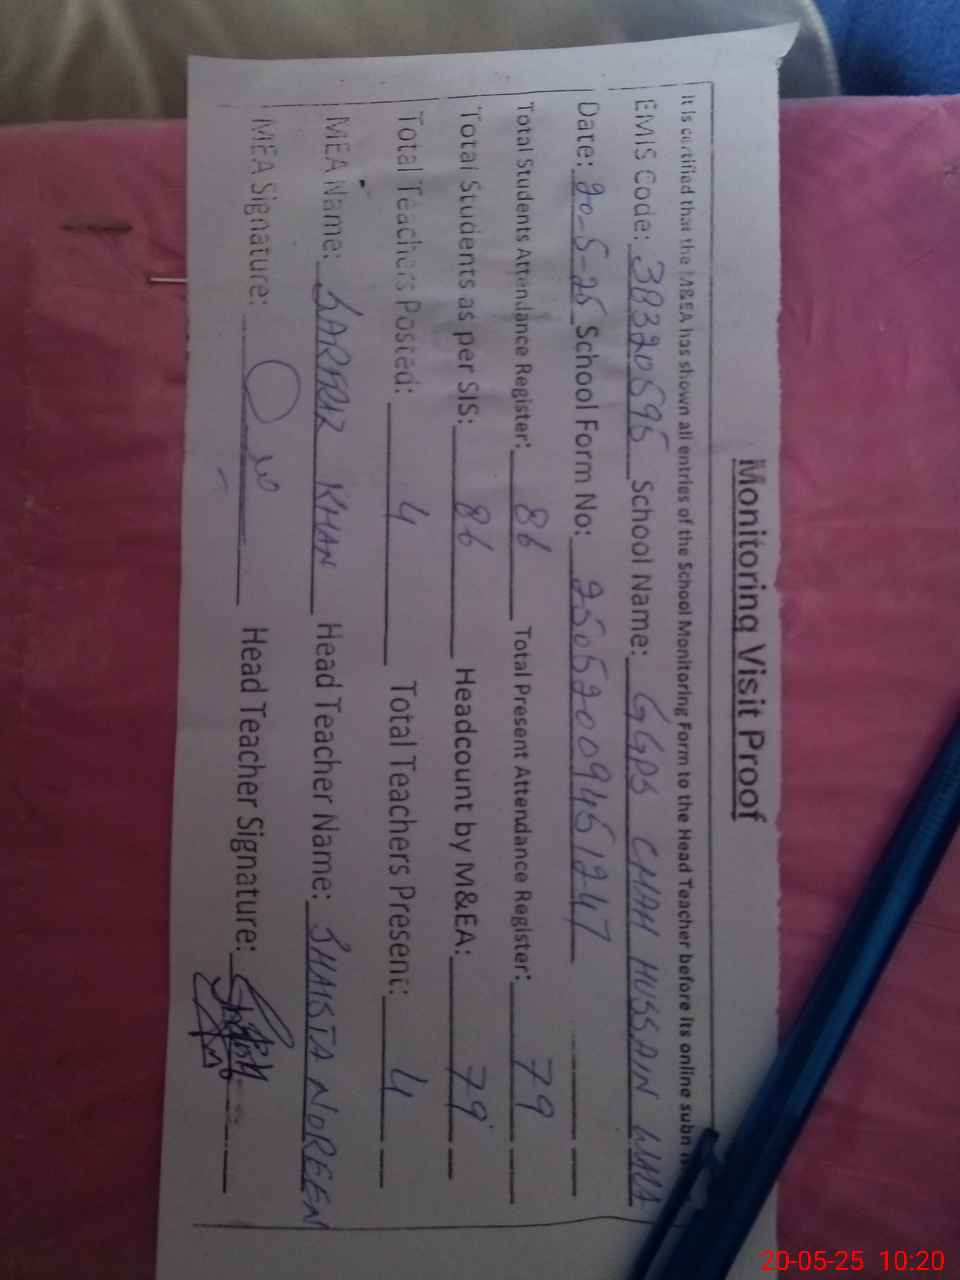 Monitoring Visit Proof
It is certified that the M&EA has shown all entries of the School Monitoring Form to the Head Teacher before its online subn
EMIS Code: 38320595 School Name: GGPS CHAH HUSSAIN WALA
Date: 20-5-25 School Form No: 2505200946 1247
Total Students Attendance Register: 86 Total Present Attendance Register: 79
Total Students as per SIS: 86 Headcount by M&EA: 79
Total Teachers Posted: 4 Total Teachers Present: 4
MEA Name: SARFRAZ KHAN Head Teacher Name: SHAISTA NOREEN
MEA Signature: Head Teacher Signature:
20-05-25 10:20